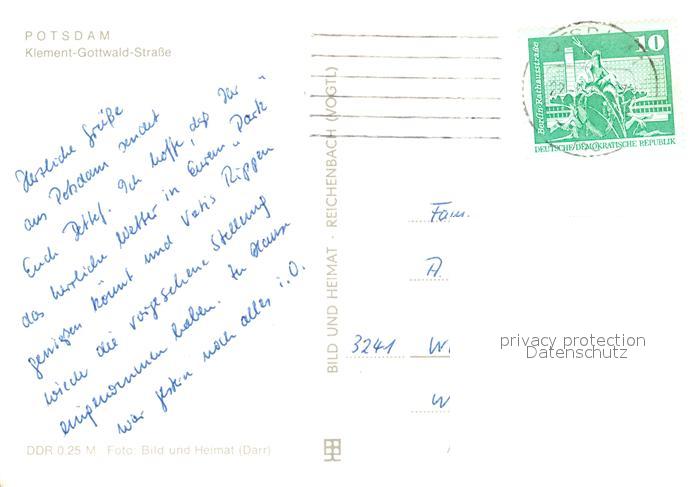 POTSDAM
Klement-Gottwald-Straße
Herzliche Grüße
aus Potsdam sendet
Euch Detlef. Ich hoffe, daß Ihr
das herrliche Wetter in „Eurem“ Park
genießen könnt und Vatis Rippen
wieder die vorgesehene Stellung
eingenommen haben. Zu Hause
war gestern noch alles i.O.
DDR 0,25 M Foto: Bild und Heimat (Darr)
BILD UND HEIMAT · REICHENBACH (VOGTL)
10
Berlin-Rathausstraße
DEUTSCHE DEMOKRATISCHE REPUBLIK
Fam.
A.
3241 W
W
privacy protection
Datenschutz